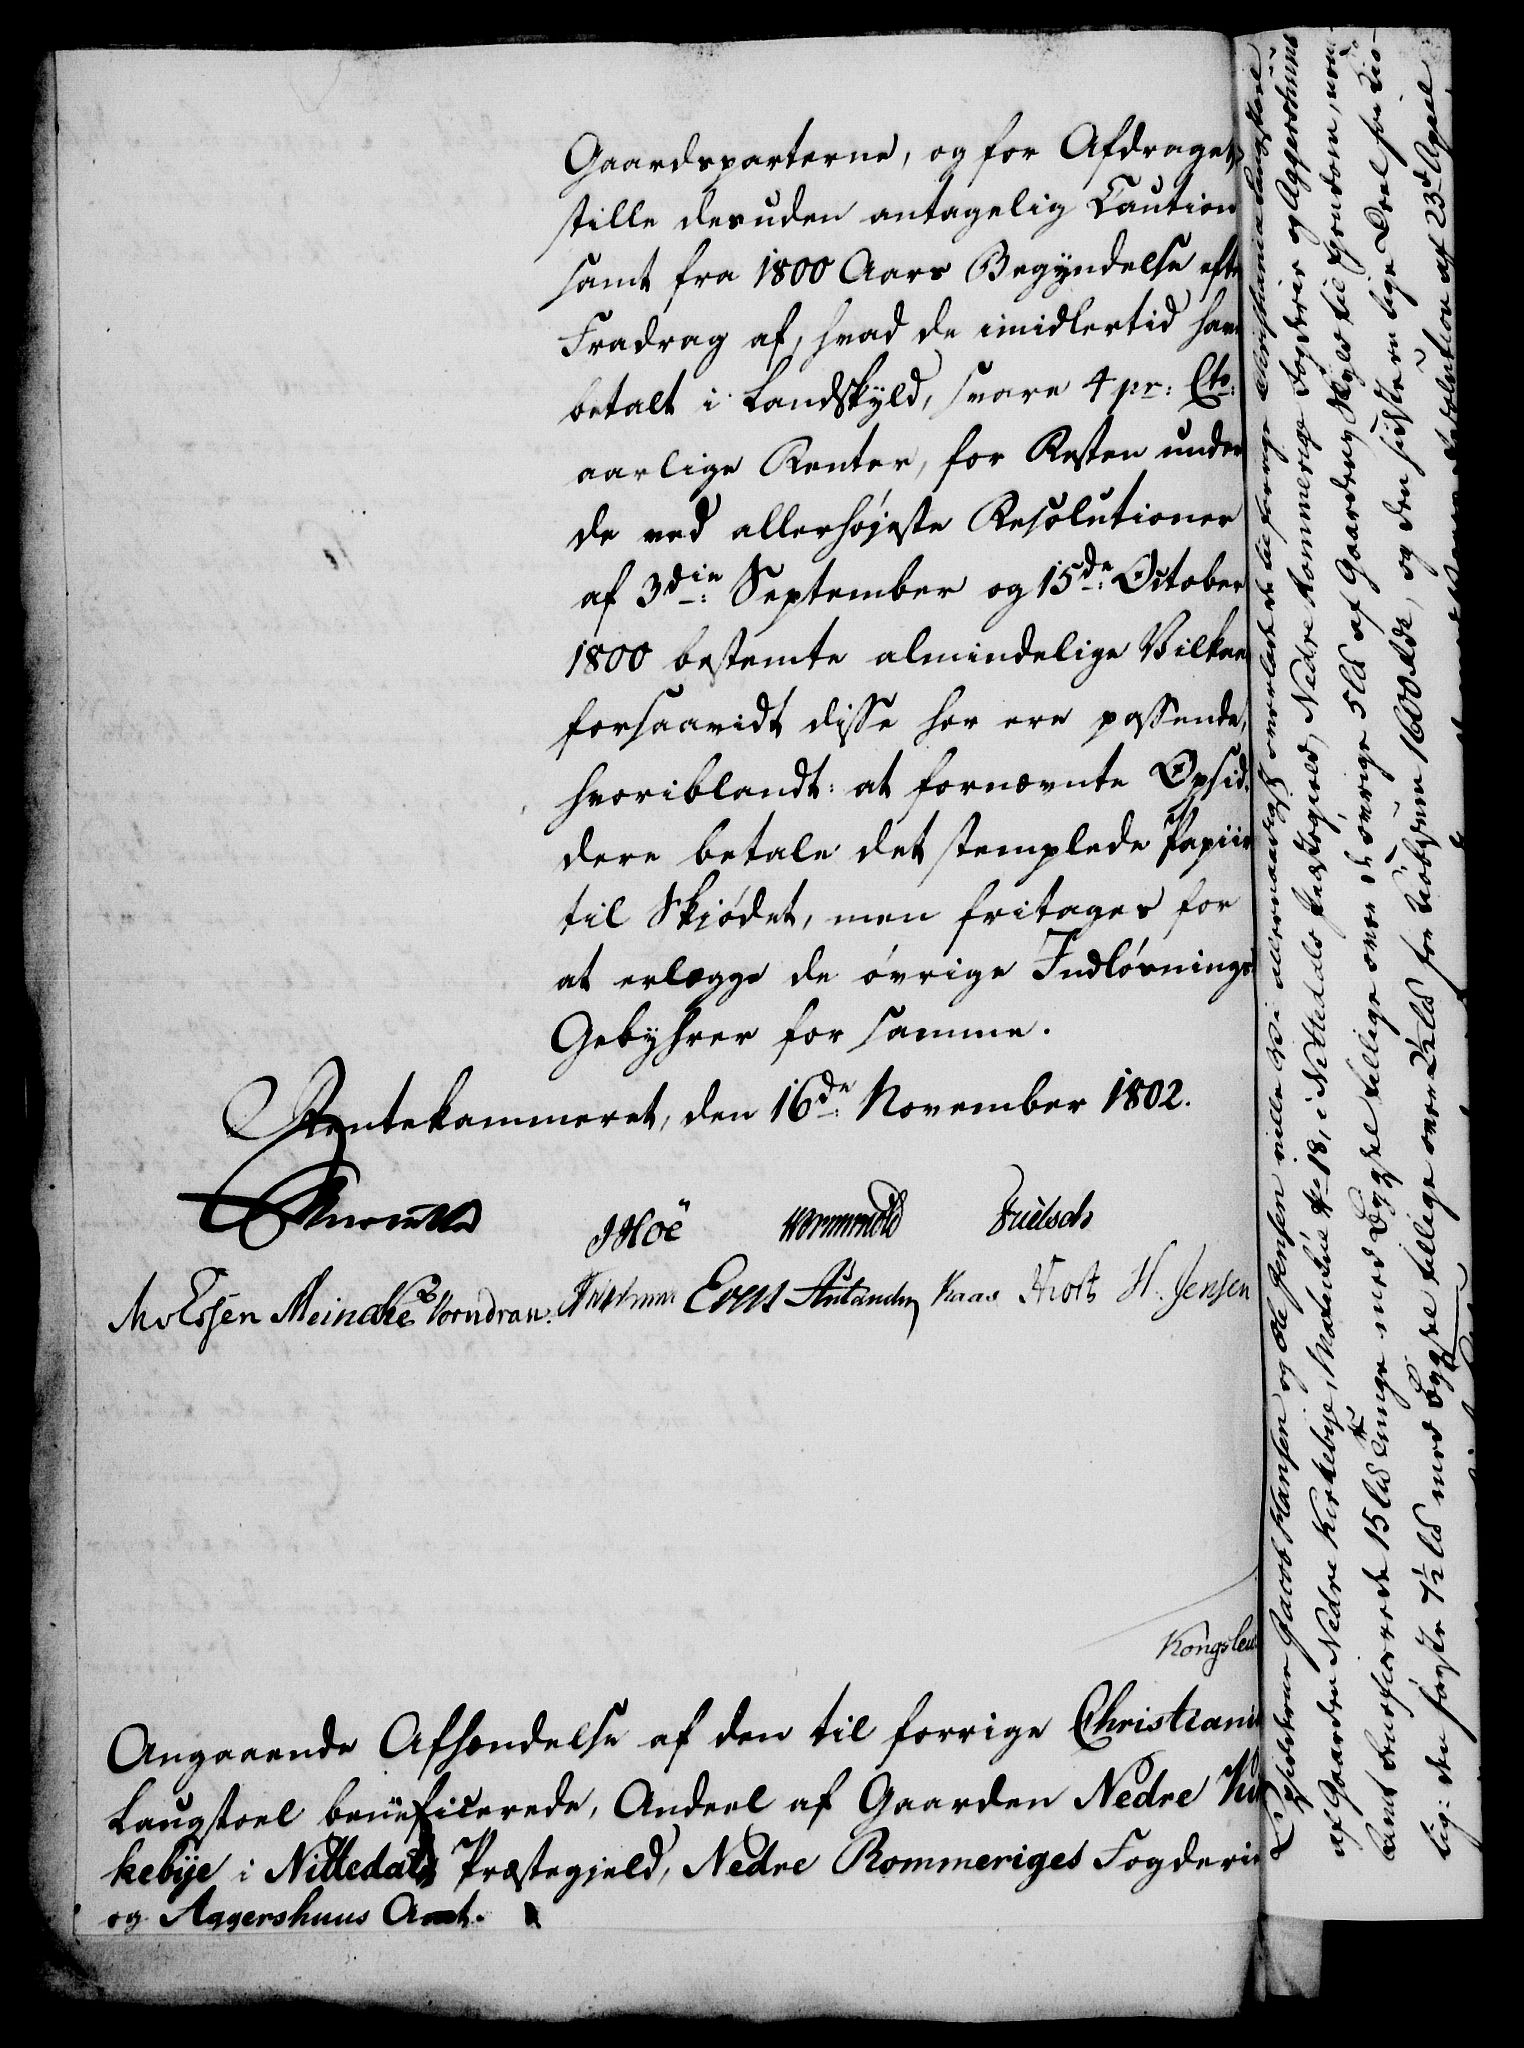 Gaardsparterne, og for Afdraget,
stille desuden antagelig Caution
samt fra 1800 Aars Begyndelse efte
Fradrag af, hvad de imidlertid have
betalt i Landskyld, svare 4 pr: Cto:
aarlige Renter, for Resten under
de ved allerhøjeste Resolutioner
af 3die: September og 15de: October
1800 bestemte almindelige Vilkaar
forsaavidt disse her ere passende,
hvoriblandt: at fornævnte Opsid¬
dere betale det stemplede Papiir
til Skjødet, men fritages for
at erlægge de øvrige Indløsnings
Gebyhrer for samme.
Rentekammeret, den 16de: November 1802.
JHoë Wormskiold
MvEssen Meincke Vorndran. Kaas H. Jensen
Kongsleu
Angaaende Afhændelse af den til forrige Christiani
Laugstoel beneficerede, Andeel af Gaarden Nedre Kir
kebÿe i Nittedals Præstegield, Nedre Rommeriges Fogderie
og Aggershuus Amt.
Opsidderne Jacob Hansen og Ole Jensen ville Vi allernaadigst overlade de til forrige Christiania Laugstoel
af Gaarden Nedre Kirkebye, Matricul No 18, i Nittedals Præstegield, Nedre Rommeriges Fogderie og Aggershuus
Amt beneficerede 15 Ld Tunge med Bygsel tillige over de øvrige 5 Ld af Gaardens Skyld til Eiendom, nem¬
lig: den første 7½ Ld med Bygsel tillige over 2½ Ld for Kiøbesum 1600 Rdr, og den sidste en lige Deel for Kiø¬
Resolution af 23de April